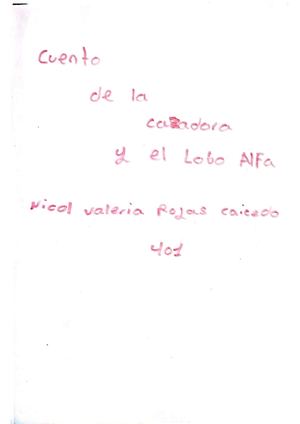 Cuento
de la
cazadora
y el Lobo Alfa
Nicol valeria Rojas caicedo
401